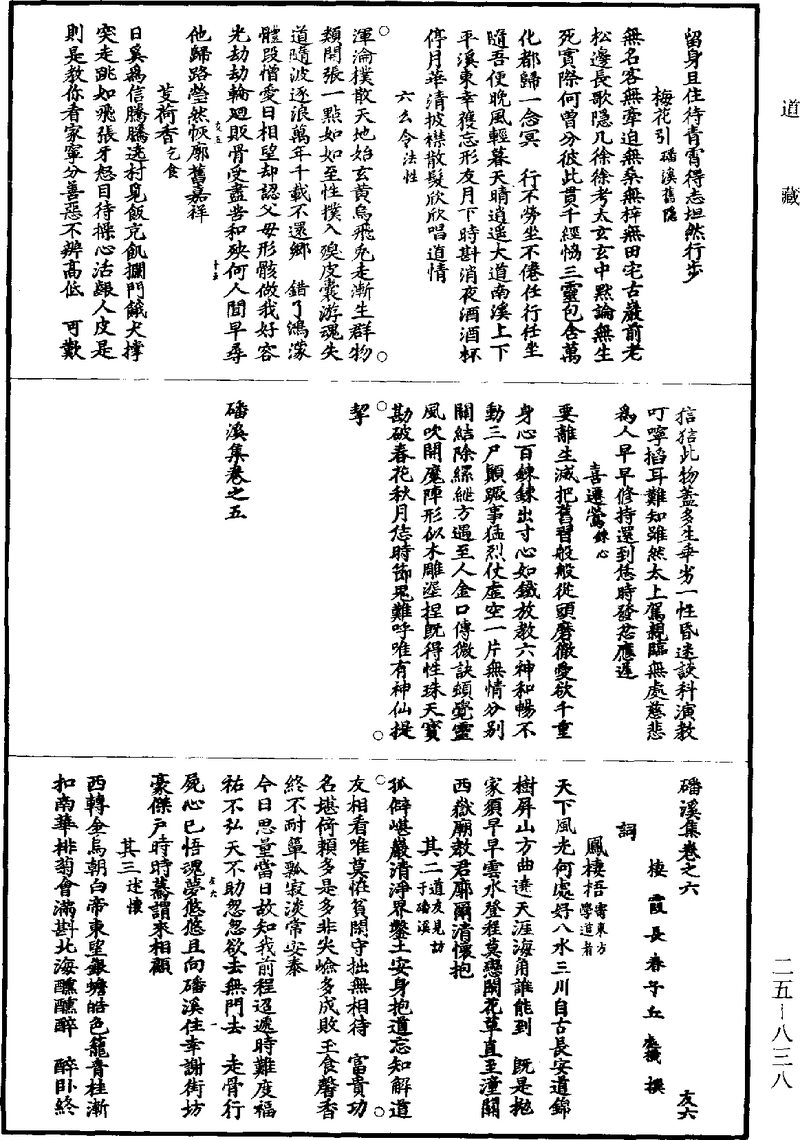 道藏
留身且住待青霄得志坦然行步
梅花引 磻溪舊隱
無名客無牽迫無桑無梓無田宅古巖前老
松邊長歌隱几徐徐考太玄玄中默論無生
死實際何曾分彼此貫千經恊三靈包含萬
化都歸一念冥　行不勞坐不倦任行任坐
隨吾便晚風輕暮天晴逍遥大道南溪上下
平溪東幸獲忘形友月下時斟消夜酒酒杯
停月華清披襟散髮欣欣唱道情
六幺令 法性
渾淪撲散天地始玄黃烏飛兔走漸生群物
類開張一點如如至性撲入臭皮囊游魂失
道隨波逐浪萬年千載不還鄉　錯了鴻濛
體段憎愛日相望却認父母形骸做我好容
光劫劫輪迴販骨受盡苦和殃何人聞早尋
他歸路瑩然恢廓舊嘉祥
友五
十五
芰荷香 乞食
日奚爲信騰騰遶村覓飯充飢攔門餓犬撐
突走跳如飛張牙怒目待操心活齩人皮是
則是教你看家寧分善惡不辨高低　可歎
狺狺此物蓋多生卑劣一性昏迷談科演教
叮嚀搯耳難知雖然太上駕親臨無處慈悲
爲人早早修持還到恁時發忿應遲
喜遷鶯 鍊心
要離生滅把舊習般般從頭磨徹愛欲千重
身心百鍊鍊出寸心如鐵放教六神和暢不
動三尸顛蹶事猛烈仗虛空一片無情分別
關結除縲紲方遇至人金口傳微訣頓覺靈
風吹開魔陣形似木雕泥捏既得性珠天寶
勘破春花秋月恁時節鬼難呼唯有神仙提
挈
磻溪集卷之五
磻溪集卷之六
友六
棲霞長春子丘處機撰
詞
鳳棲梧 寄東方學道者
天下風光何處好八水三川自古長安道錦
樹屏山方曲遶天涯海角誰能到　既是抛
家須早早雲水登程莫戀閑花草直至潼關
西嶽廟教君廓爾清懷抱
其二 道友見訪于磻溪
孤僻嵁巖清淨界鑿土安身抱道忘知解道
友相看唯莫恠貧閑守拙無相待　富貴功
名堪倚賴多是多非失嶮多成敗玉食馨香
終不耐簞瓢寂淡常安泰
今日思量當日故知我前程迢遞時難度福
祐不弘天不助忽忽欲去無門去　走骨行
屍心已悟魂夢悠悠且向磻溪住幸謝街坊
友六
一
豪傑戶時時驀謂來相顧
其三 述懷
西轉金烏朝白帝東望銀蟾皓色籠青桂漸
扣南華排菊會滿斟北海醺醺醉　醉卧終
二五－八三八